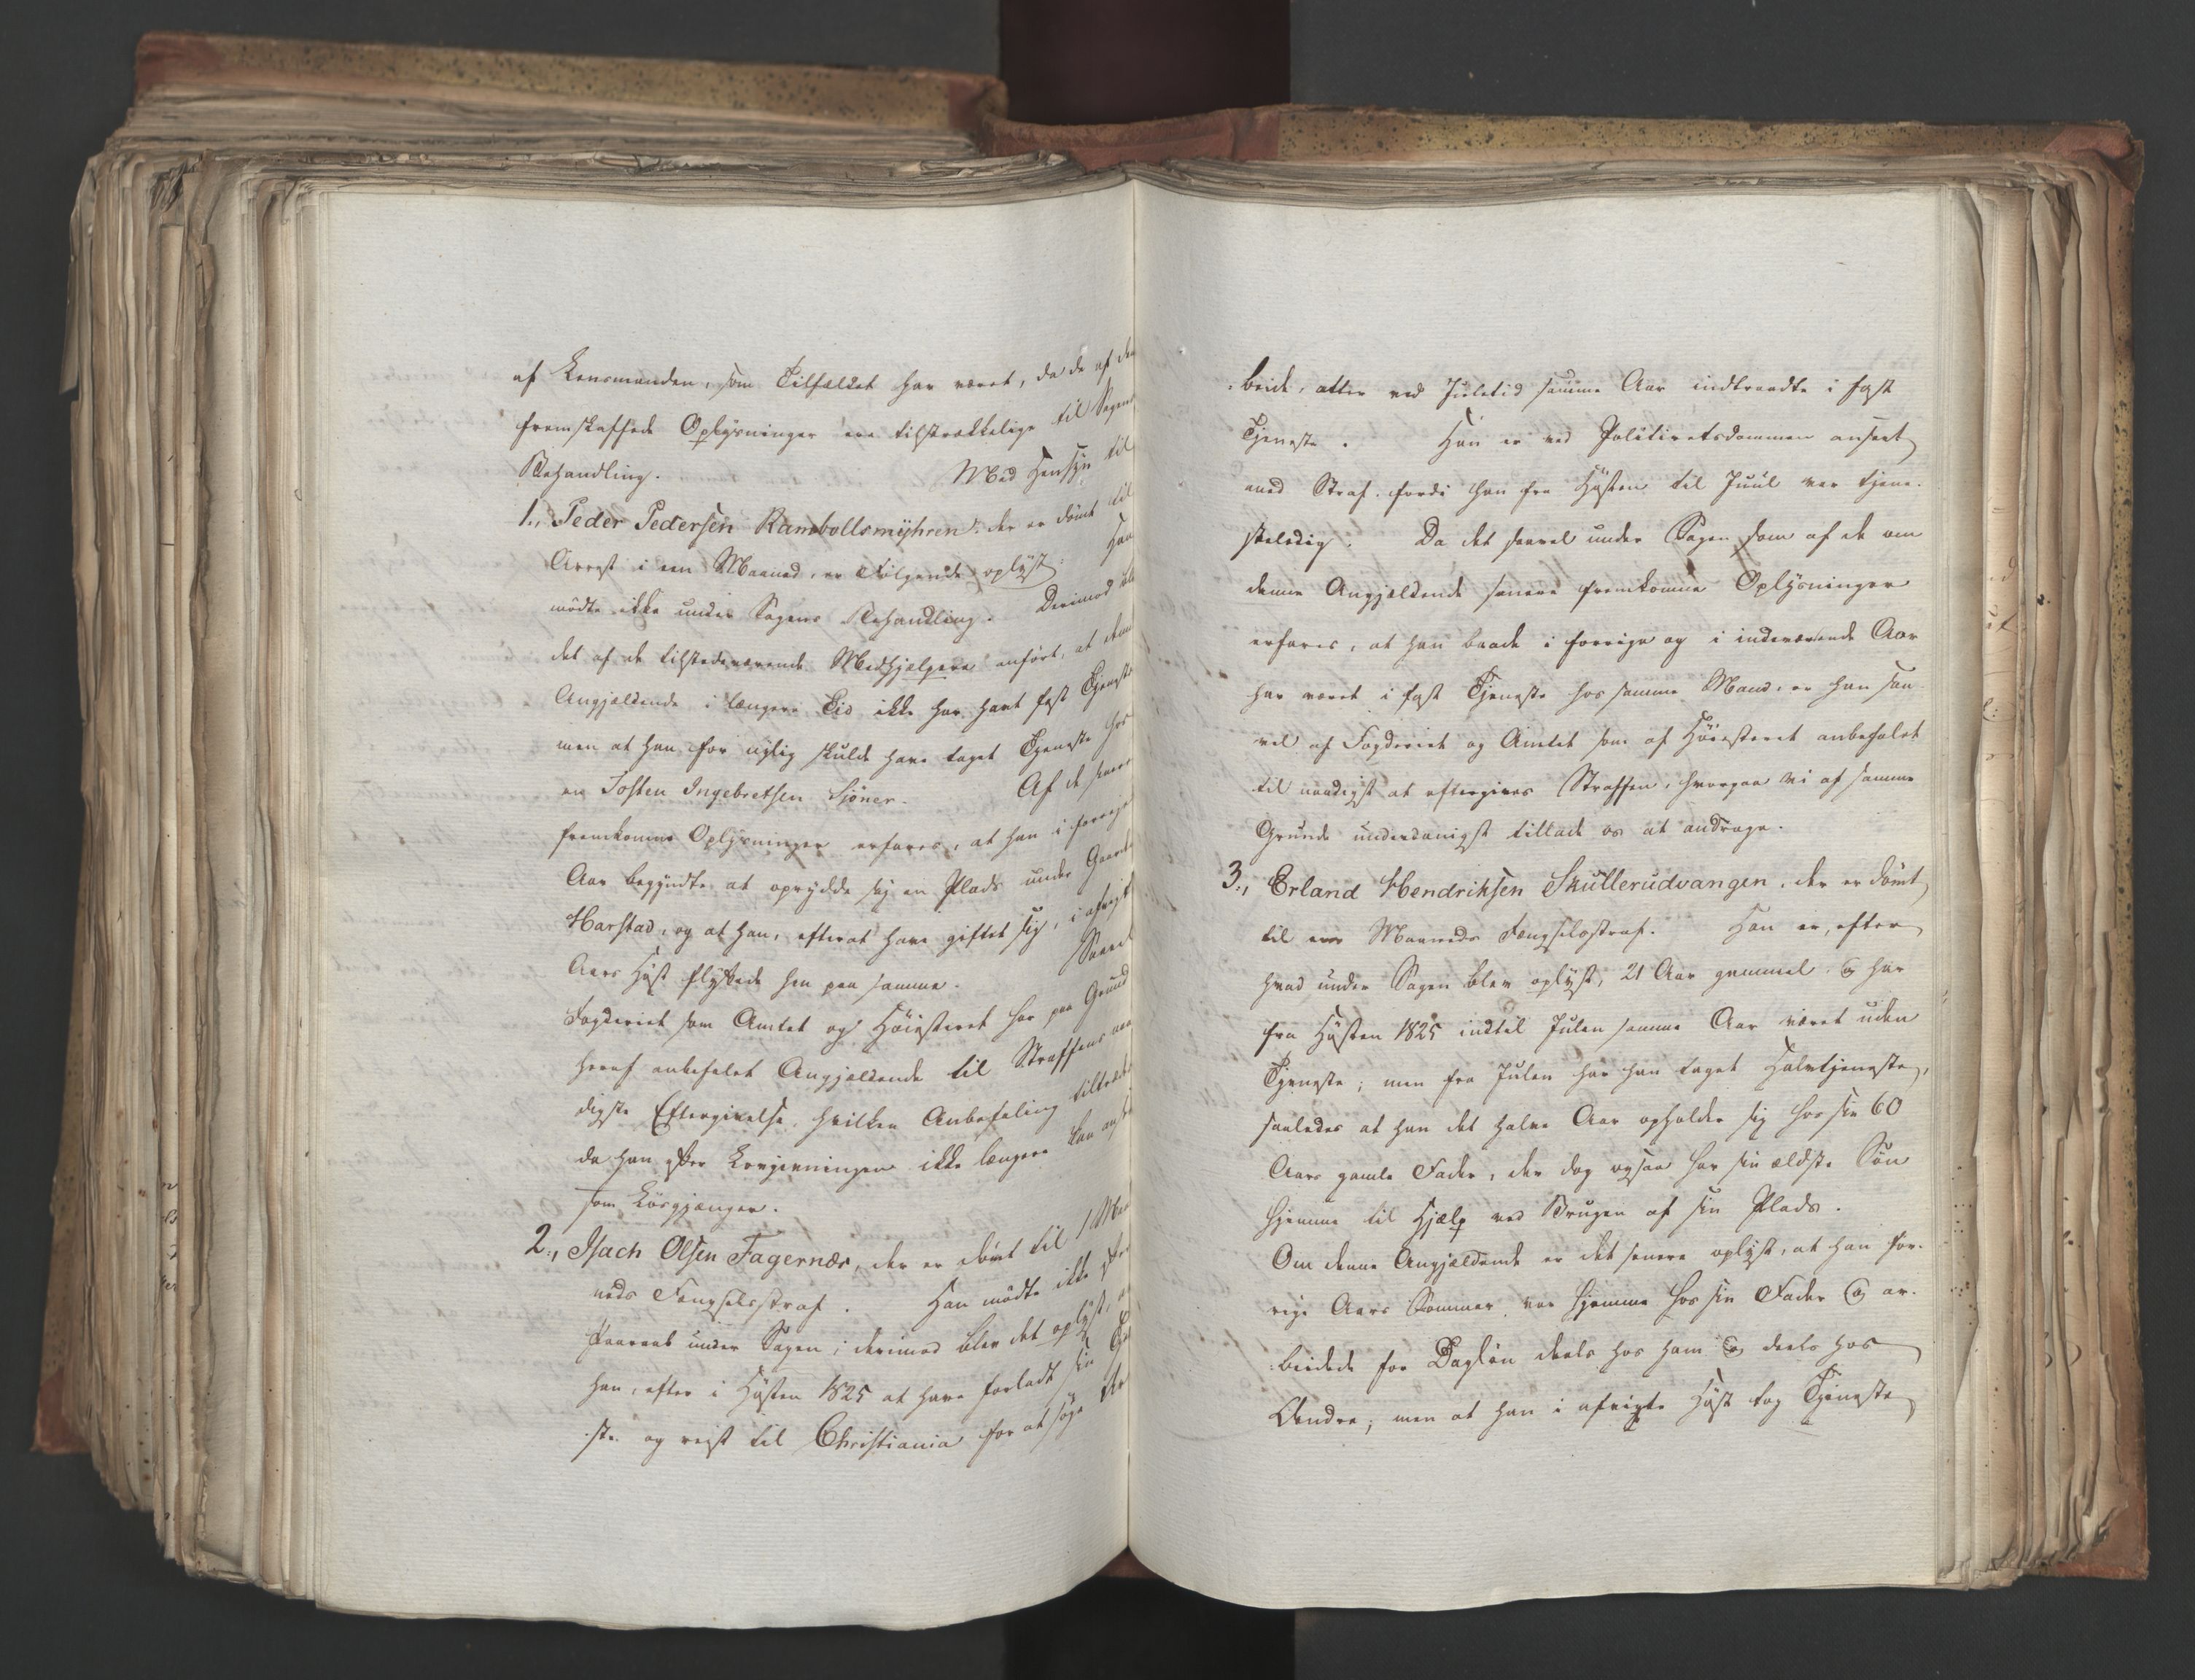 af Lensmanden, som Tilfældet har været, da de af den
fremskaffede Oplysninger ere tilstrækkelige til Sagens
Behandling. Med Hensyn til
1., Peder Pedersen Rambollsmyhren, der er dömt til
Arrest i een Maaned, er Følgende oplyst: Han
mödte ikke under Sagens Behandling. Derimod blev
det af de tilstedeværende Medhjelpere anfört, at denne
Angjældende i længere Tid ikke har havt fast Tjeneste
men at han for nylig skulde have taget Tjeneste hos
en Tosten Ingebretsen Sjöner. Af de senere
fremkomne Oplysninger erfares, at han i forrige
Aar begyndte at oprydde sig en Plads under Gaarden
Harstad, og at han, efterat have giftet sig, i afvigte
Aars Høst flyttede hen paa samme. Saavel
Fogderiet som Amtet og Höiesteret har paa Grund
heraf anbefalet Angjældende til Straffens naa
digste Eftergivelse, hvilken Anbefaling tiltrædes
da han efter Lovgivningen ikke længere kan ansees
som Lösgjænger.
2., Isach Olsen Fagernæs, der er dömt til 1 Maa
neds Fængselsstraf. Han mödte ikke efter
Paaraab under Sagen; derimod blev det oplyst, at
han, efter i Høsten 1825 at have forladt sin Tjene
ste og reist til Christiania for at søge Ar
beide, atter ved Juletid samme Aar indtraadte i fast
Tjeneste. Han er ved Politiretsdommen anseet
med Straf, fordi han fra Høsten til Juul var tjene-
steledig. Da det saavel under Sagen som af de om
denne Angjældende senere fremkomne Oplysninger
erfares, at han baade i forrige og i indeværende Aar
har været i fast Tjeneste hos samme Mand, er han saa
vel af Fogderiet og Amtet som af Höiesteret anbefalet
til naadigst at eftergives Straffen, hvorpaa vi af samme
Grunde underdanigst tillade os at andrage.
3., Erland Hendriksen Skullerudvangen, der er dömt
til een Maaneds Fængselsstraf. Han er, efter
hvad under Sagen blev oplyst, 21 Aar gammel og har
fra Høsten 1825 indtil Julen samme Aar været uden
Tjeneste; men fra Julen har han taget Halvtjeneste,
saaledes at han det halve Aar opholder sig hos sin 60
Aars gamle Fader, der dog ogsaa har sin ældste Sön
hjemme til Hjælp ved Brugen af sin Plads.
Om denne Angjældende er det senere oplyst, at han for-
rige Aars Sommer var hjemme hos sin Fader og ar-
beidede for Daglön deels hos ham og deels hos
Andre; men at han i afvigte Høst tog Tjeneste